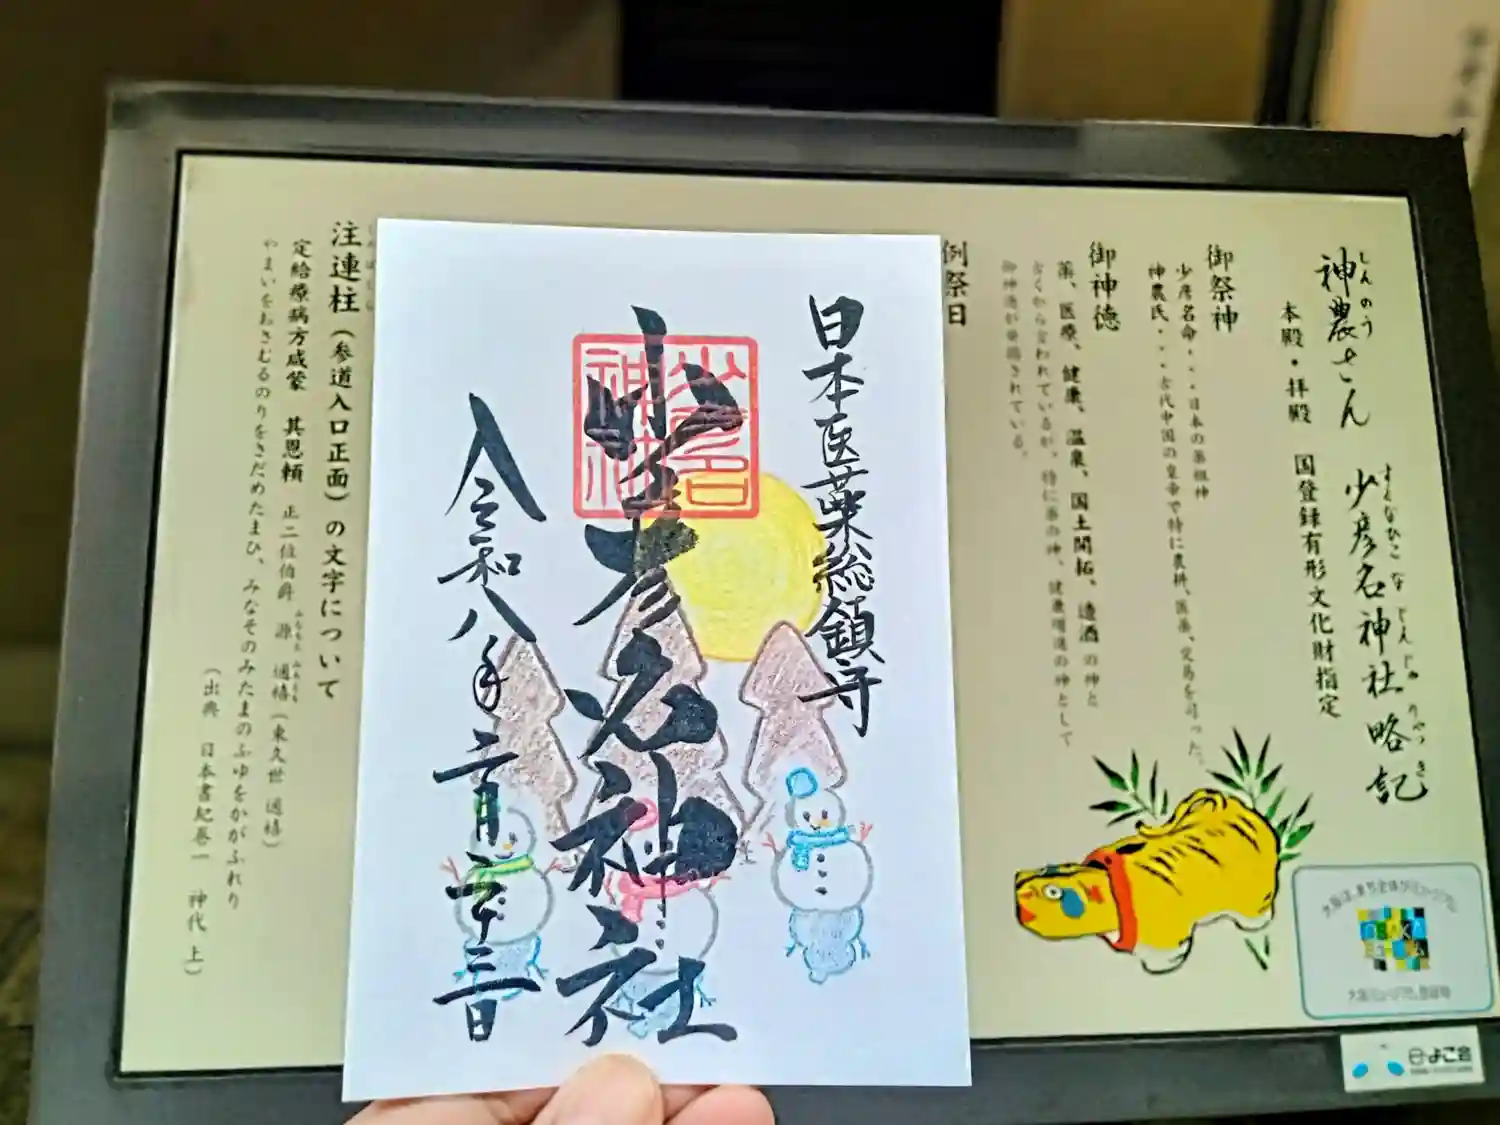 しんのう
神農さん
すくなひこなじんじゃりゃっき
少彦名神社略記
本殿・拝殿 国登録有形文化財指定
御祭神
少彦名命・・・日本の薬祖神
神農氏・・・古代中国の皇帝で特に農耕、医薬、交易を司った。
御神徳
薬、医療、健康、温泉、国土開拓、造酒の神と
古くから言われているが、特に薬の神、健康増進の神として
御神徳が発揚されている。
例祭日
日本医薬総鎮守
少彦名神社
少彦名
神社
令和八年二月二十三日
注連柱（参道入口正面）の文字について
定給療病方咸蒙 其恩頼 正二位伯爵 源 通禧（東久世 通禧）
やまいをおさむるのりをさだめたまひ、みなそのみたまのふゆをかがふれり
（出典 日本書紀巻一 神代 上）
大阪は、まち全体がミュージアム
OSAKA
大阪ミュージアム登録物